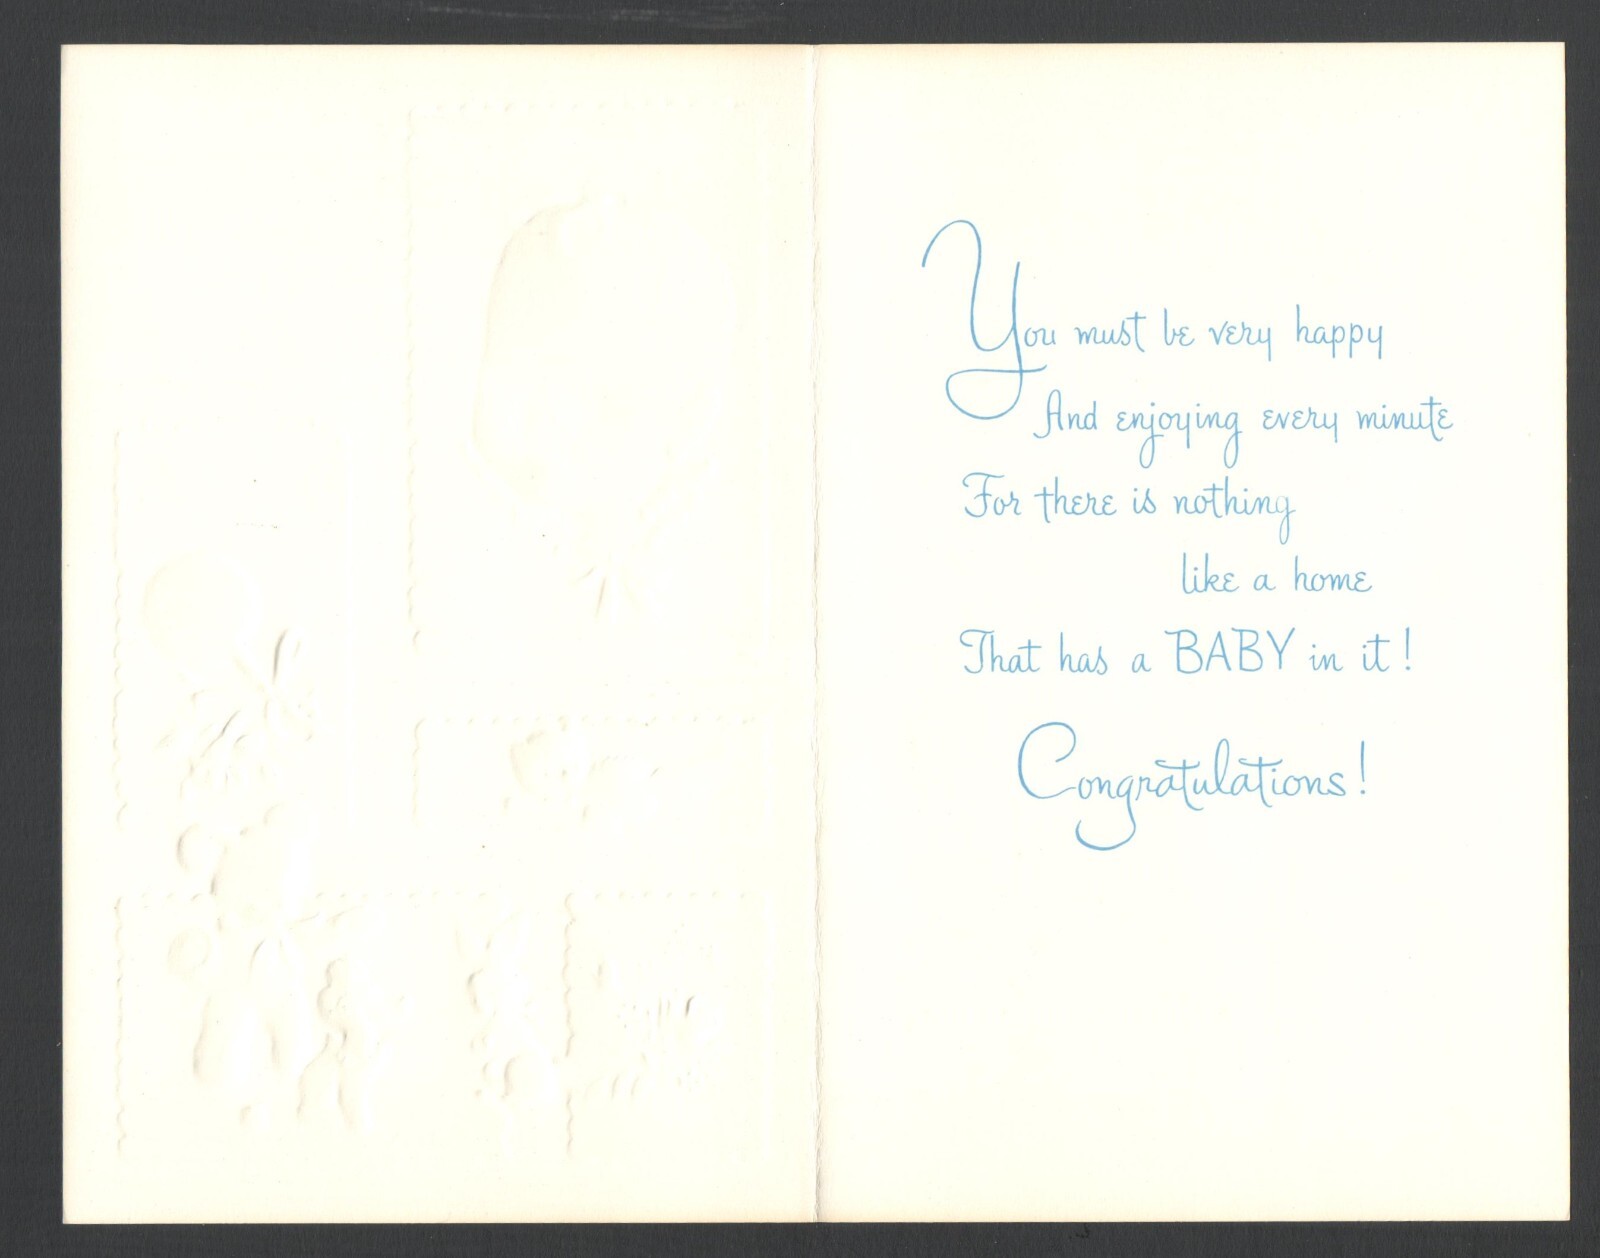 You must be very happy
And enjoying every minute
For there is nothing
like a home
That has a BABY in it!
Congratulations!